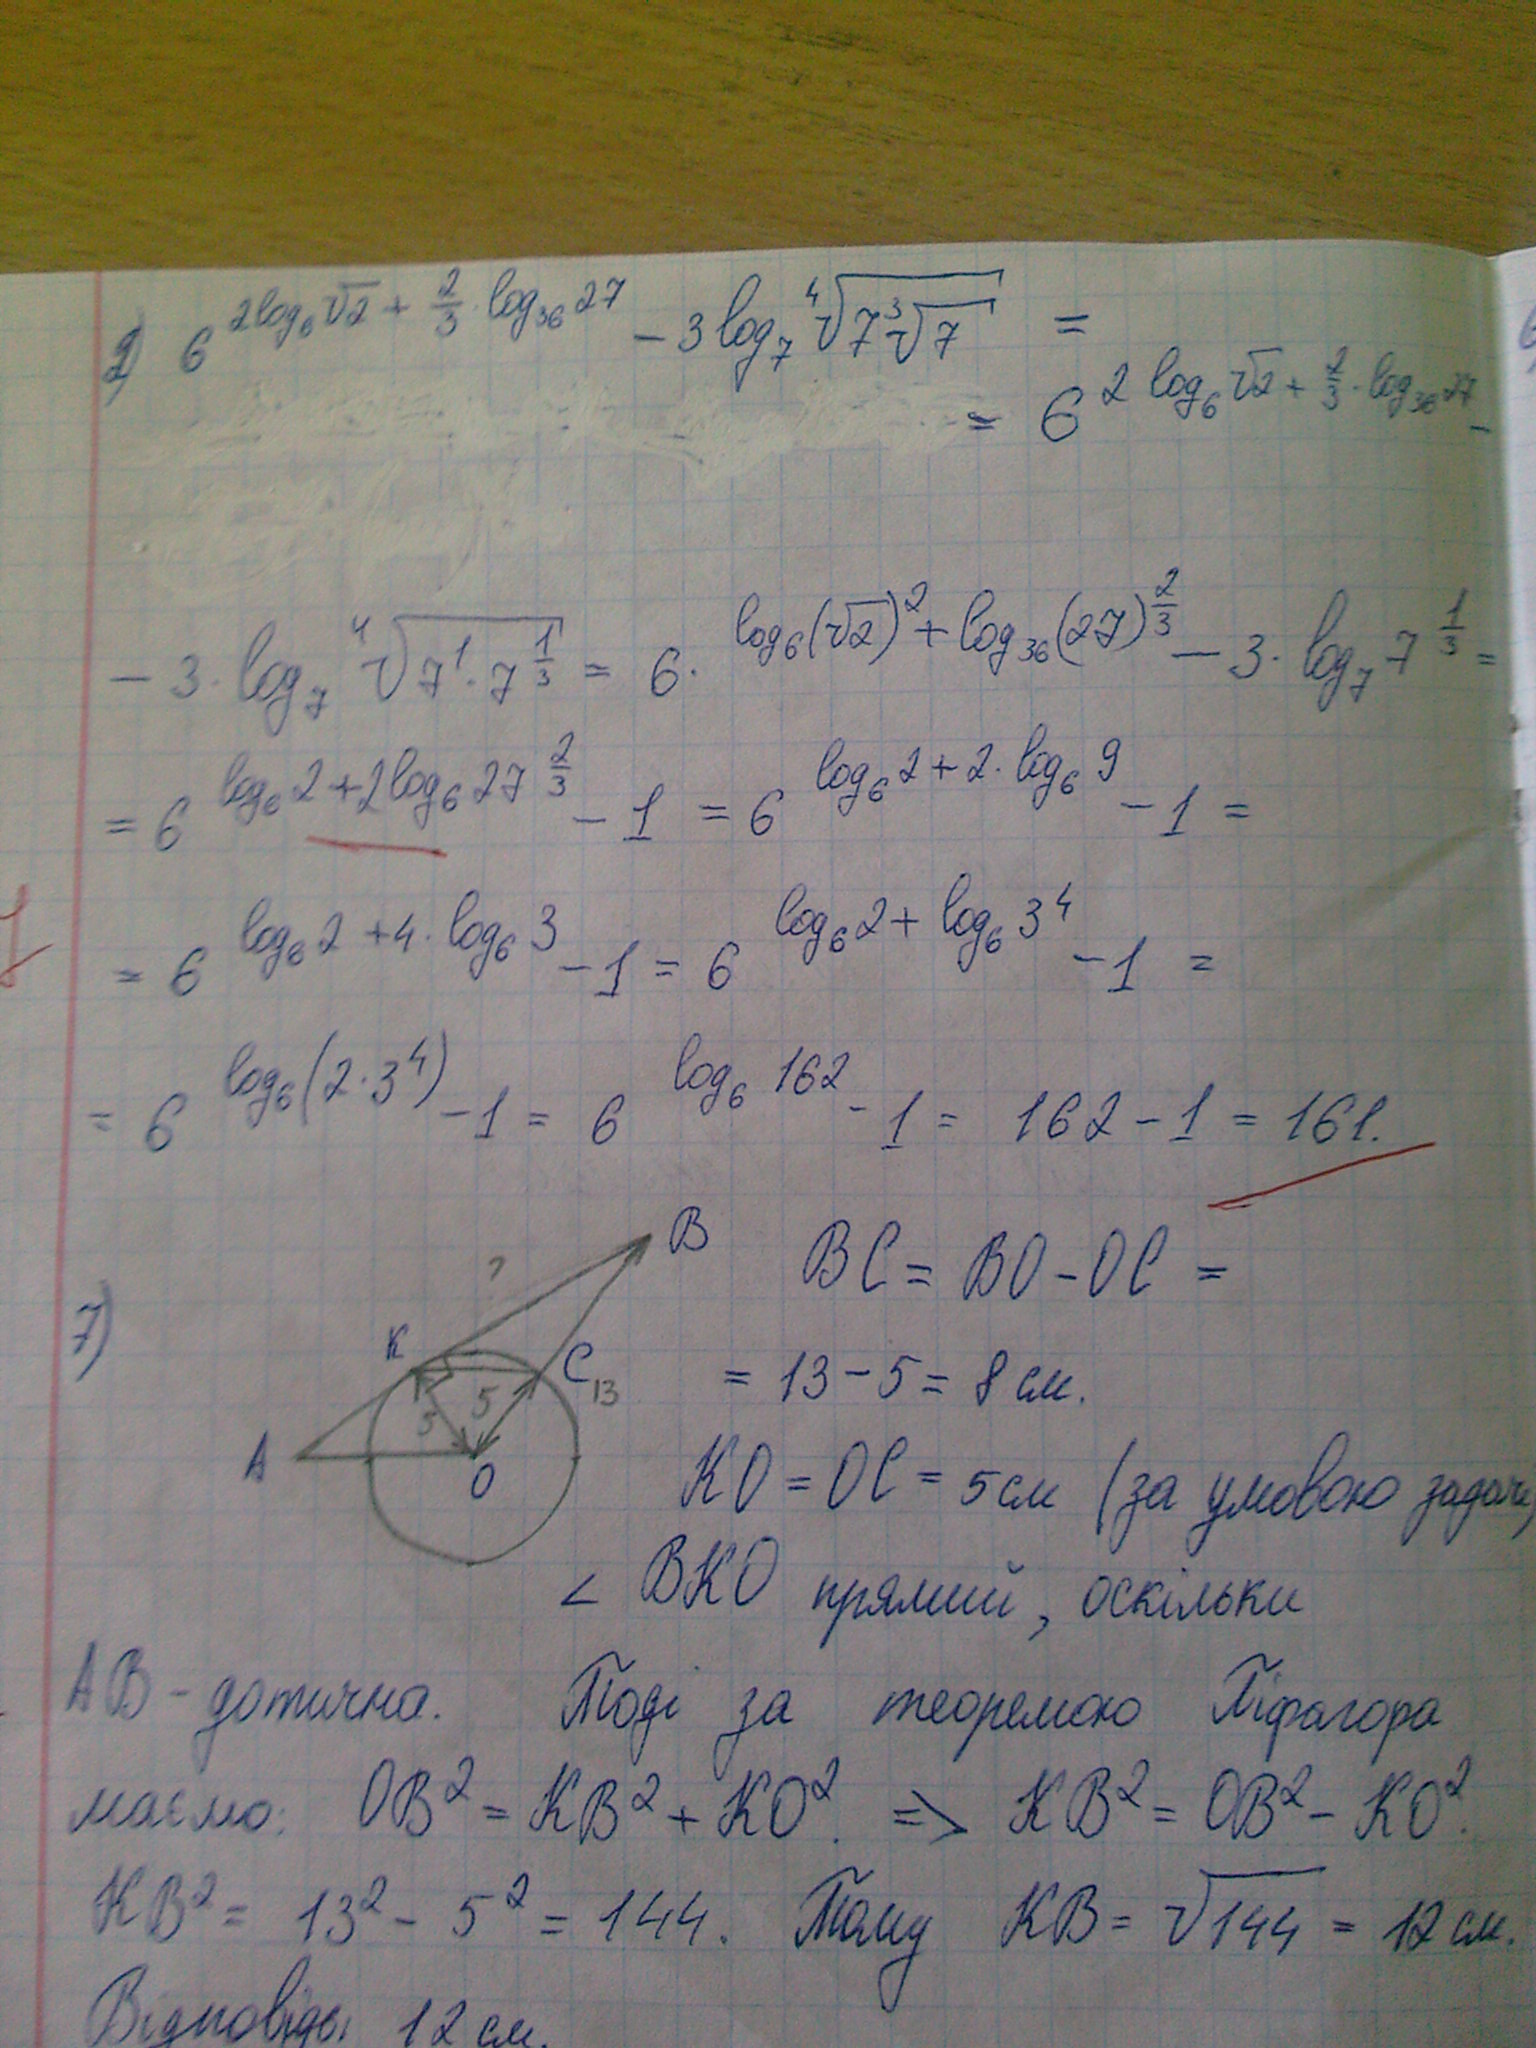 2) 6^{2log₆√2 + 2/3 · log₃₆27} − 3log₇ ⁴√(7 ³√7) =
= 6^{2 log₆√2 + 2/3 · log₃₆27} −
− 3 · log₇ ⁴√(7¹ · 7^{1/3}) = 6 · ^{log₆(√2)² + log₃₆(27)^{2/3}} − 3 · log₇ 7^{1/3} =
= 6^{log₆2 + 2log₆27^{2/3}} − 1 = 6^{log₆2 + 2 · log₆9} − 1 =
= 6^{log₆2 + 4 · log₆3} − 1 = 6^{log₆2 + log₆3⁴} − 1 =
= 6^{log₆(2 · 3⁴)} − 1 = 6^{log₆162} − 1 = 162 − 1 = 161.
7)
B
?
K
C
13
5
5
A
O
BC = BO − OC =
= 13 − 5 = 8 см.
KO = OC = 5 см (за умовою задачі)
∠ BKO прямий, оскільки
AB – дотична. Тоді за теоремою Піфагора
маємо: OB² = KB² + KO². => KB² = OB² − KO².
KB² = 13² − 5² = 144. Тому KB = √144 = 12 см.
Відповідь: 12 см.